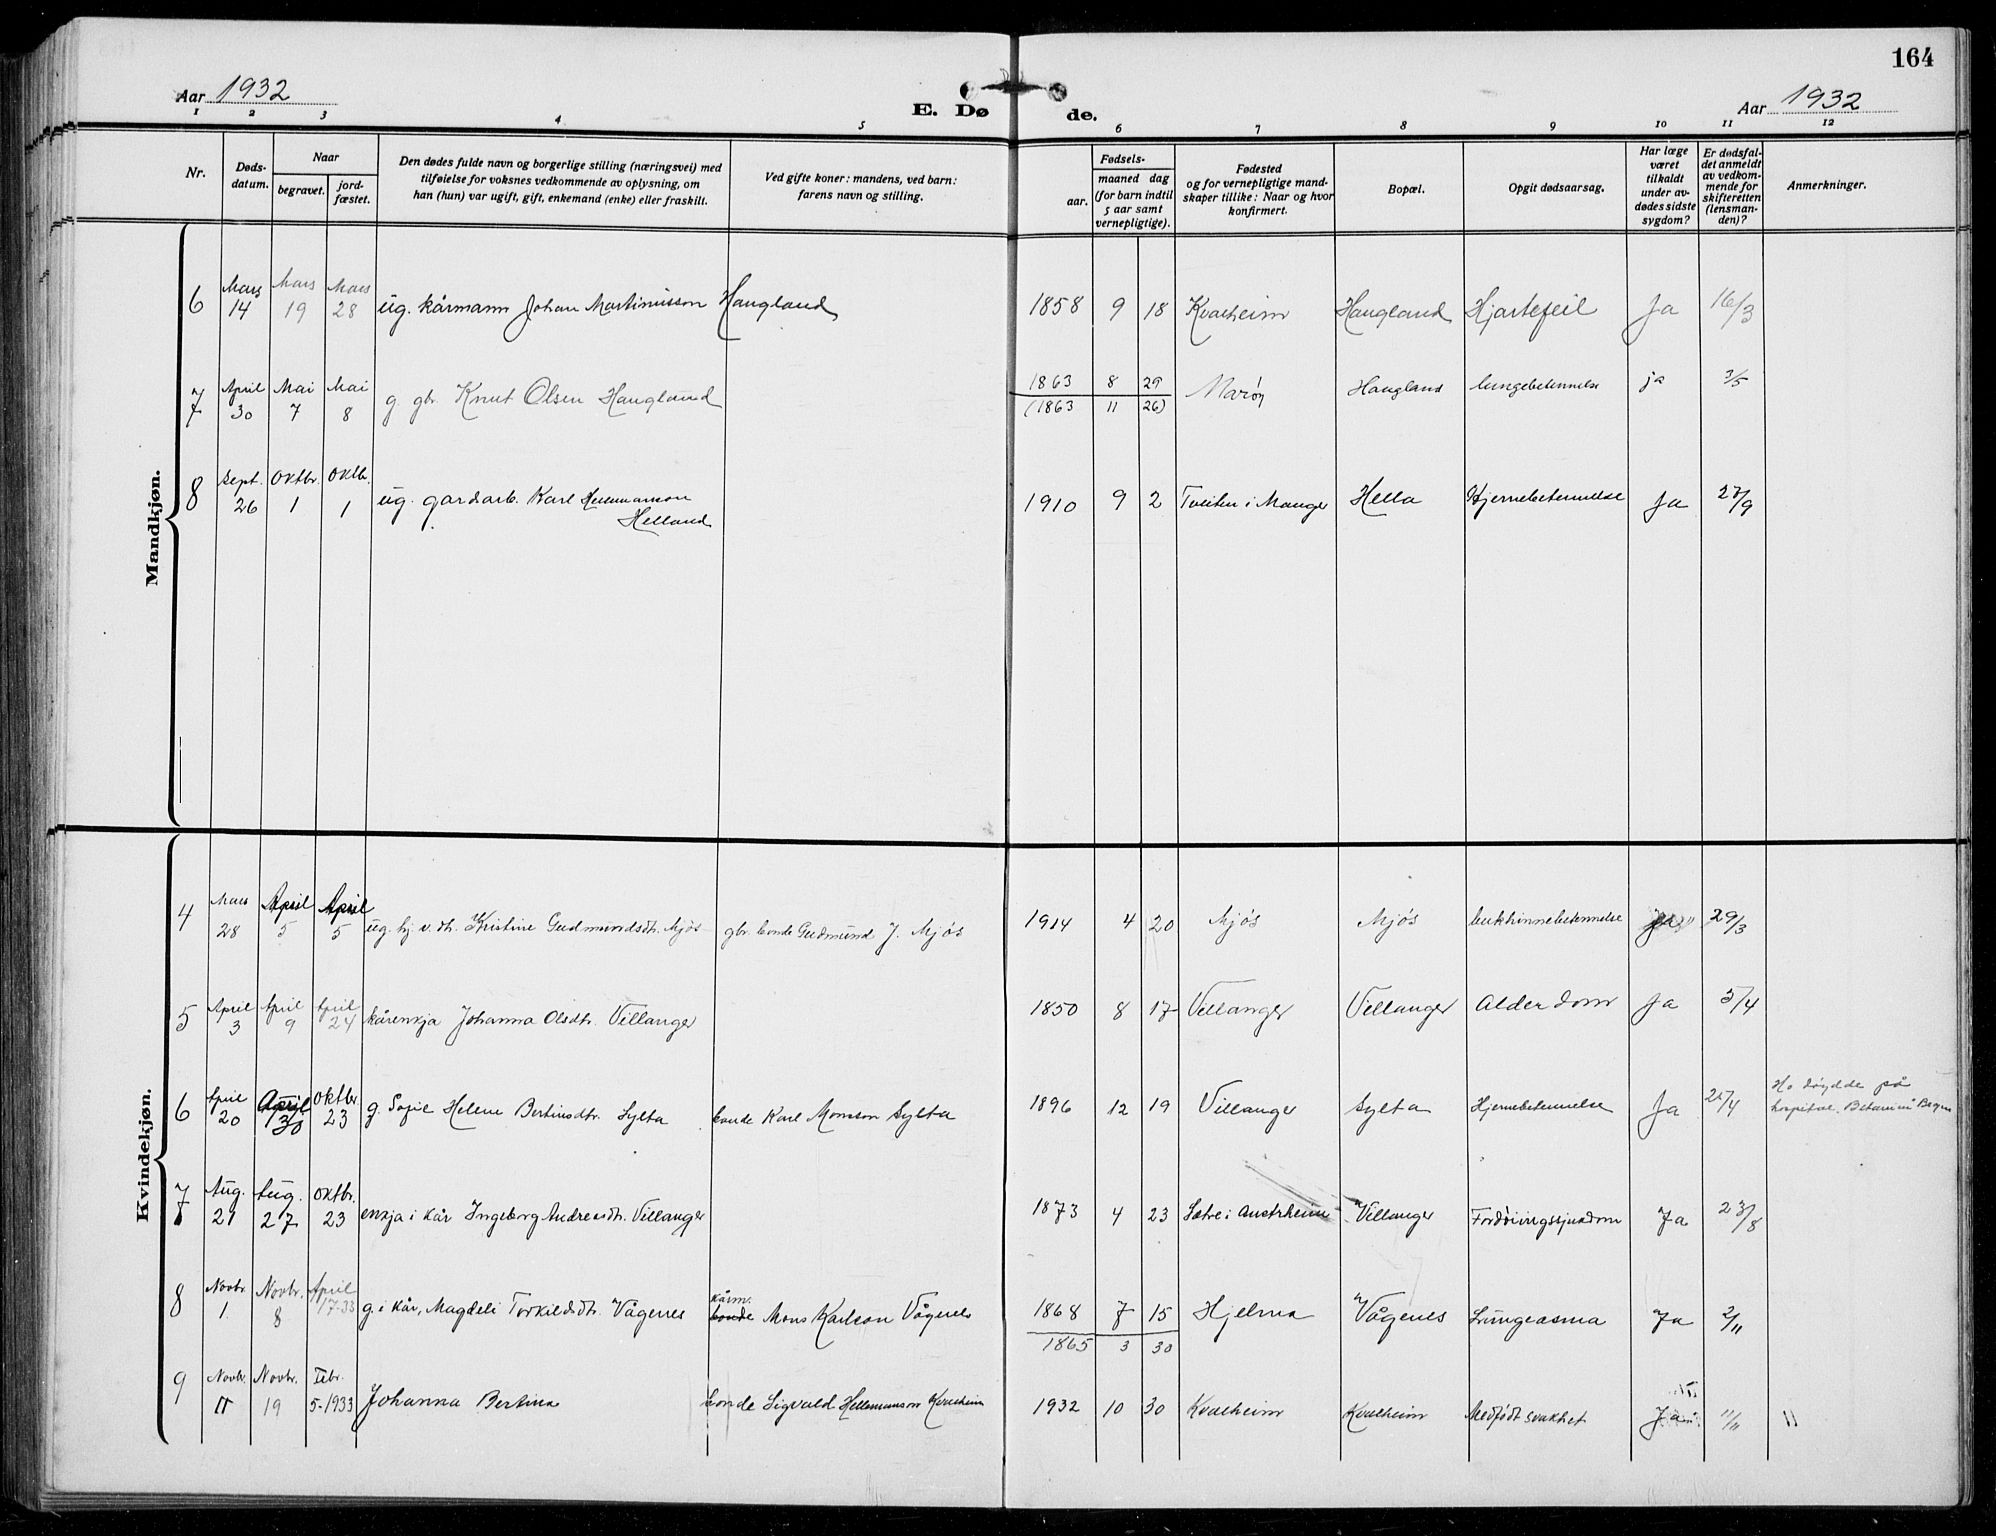 164
Aar 1932
E. Døde.
Aar 1932
1 2 3 4 5 6 7 8 9 10 11 12
Nr.
Døds-datum.
Naar
begravet.
jord-fæstet.
Den dødes fulde navn og borgerlige stilling (næringsvei) med
tilføielse for voksnes vedkommende av oplysning, om
han (hun) var ugift, gift, enkemand (enke) eller fraskilt.
Ved gifte koner: mandens, ved barn:
farens navn og stilling.
Fødsels-
aar.
maaned dag
(for barn indtil
5 aar samt
vernepligtige).
Fødested
og for vernepligtige mand-
skaper tillike: Naar og hvor
konfirmert.
Bopæl.
Opgit dødsaarsag.
Har læge
været
tilkaldt
under av-
dødes sidste
sygdom?
Er dødsfal-
det anmeldt
av vedkom-
mende for
skifteretten
(lensman-
den)?
Anmerkninger.
Mandkjøn.
6 Mars 14 Mars 19 Mars 28 ug. kårmann Johan Martinusson Haugland 1858 9 18 Kvalheim Haugland Hjartefeil Ja 16/3
7 April 30 Mai 7 Mai 8 g gbr. Knut Olsen Haugland 1863 8 29 Marøy Haugland lungebetennelse ja 3/5
(1863 11 26)
8 Sept. 26 Oktbr. 1 Oktbr. 1 ug. gardarb. Karl Hellemanson
Helland 1910 9 2 Tveiten i Manger Hella Hjernebetennelse Ja 27/9
Kvindekjøn.
4 Mars 28 April 5 April 5 ug. hj. v. dt. Kristine Gudmundsdt. Mjøs gbr. bonde Gudmund J. Mjøs 1914 4 20 Mjøs Mjøs bukhinnebetennelse Ja 29/3
5 April 3 April 9 April 24 kårenkja Johanna Olsdtr. Villanger 1850 8 17 Villanger Villanger Alderdom Ja 5/4
6 April 20 April 30 Oktbr. 23 g. Sofie Helene Bertinsdtr. Sylta bonde Karl Monsson Sylta 1896 12 19 Villanger Sylta Hjernebetennelse Ja 25/4 Ho døydde på
hospital. Betanien Bergen
7 Aug. 21 Aug. 27 Oktbr. 23 enkja i kår Ingeborg Andreasdt. Villanger 1873 4 23 Sætre i Austrheim Villanger Fordøiingssjukdom Ja 23/8
8 Novbr. 1. Novbr. 8 April 17-33 g. i kår, Magdeli Torkildsdtr. Vågenes kårm. bonde Mons Karlson Vågenes 1868 7 15 Hjelma Vågenes Lungeasma Ja 2/11
1865 3 30
9 Novbr. 11 Novbr. 19 Febr. 5-1933 Johanna Bertina bonde Sigvald Hellemanson Kvalheim 1932 10 30 Kvalheim Kvalheim Medfødt svakhet Ja 11/11 "